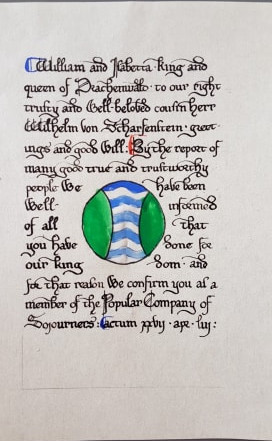 William and Isabetta king and
queen of Drachenwald · to our right
trusty and Well beloved cousin herr
Wilhelm von Scharfenstein · greet-
ings and good Will: By the report of
many good true and trustworthy
people We have been
Well- informed
of all that
you have done for
our king dom · and
for that reason We confirm you as a
member of the Popular Company of
Sojourners: actum xxvij · apr · liij :